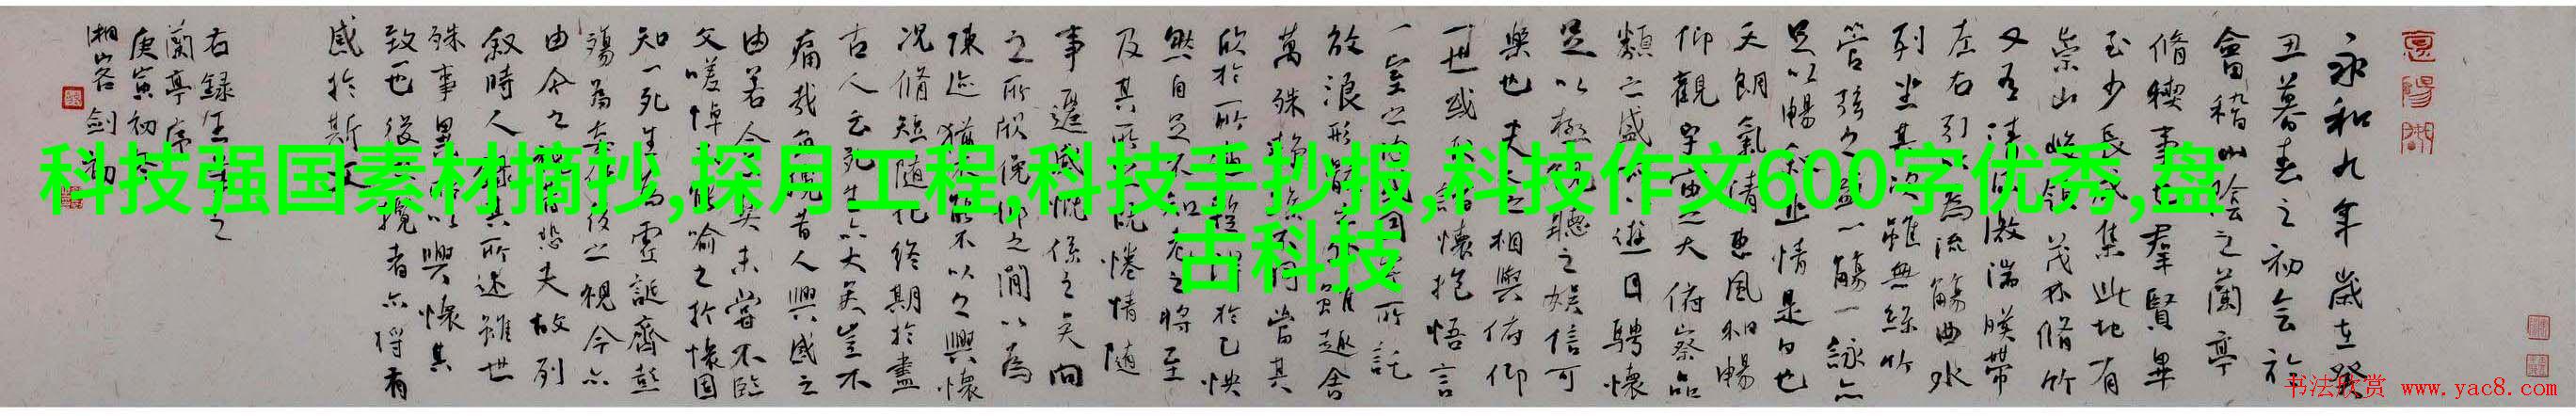 科技强国素材摘抄,探月工程,科技手抄报,科技作文600字优秀,盘
古科技
永和九年歲在癸
丑暮春之初会於
會稽山陰之蘭亭
脩稧事也群賢畢
至少長咸集此地有
崇山峻領茂林脩竹
又有清流激湍暎帶
左右引以為流觴曲水
列坐其次雖無絲竹
管弦之盛一觴一詠亦
足以暢叙幽情是日也
天朗氣清惠風和暢
仰觀宇宙之大俯察品
類之盛所以遊目騁懷
足以極視聽之娛信可
樂也夫人之相與俯仰
一世或取諸懷抱悟言
一室之內或因寄所託
放浪形骸之外雖趣舍
萬殊静躁不同當其
欣於所遇暫得於己怏
然自足不知老之將至
及其所之既惓情隨
事遷感慨係之矣向
之所欣俛仰之間以為
陳迹猶不能不以之興懷
况脩短随化終期於盡
古人云死生亦大矣豈不
痛哉每攬昔人興感之
由若合一契未嘗不臨
文嗟悼不能喻之於懷固
知一死生為虛誕齊彭
殤為妄作後之視今亦
由今之視昔悲夫故列
叙時人録其所述雖世
殊事異所以興懷其
致一也後之攬者亦將有
感於斯文
右録王羲之
蘭亭序
庚寅初冬
书法欣赏 www.yac8.com